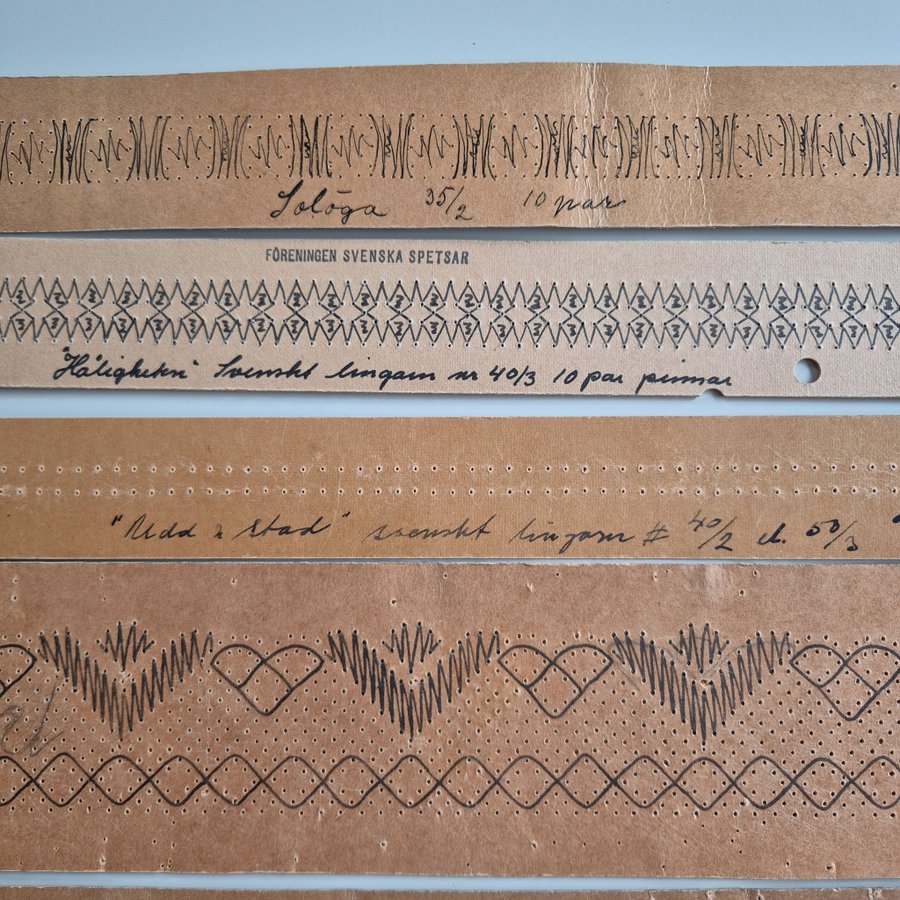 Solöga 35/2 10 par
FÖRENINGEN SVENSKA SPETSAR
"Håligheten" Svenskt lingarn nr 40/3 10 par pinnar
"Udd & stad" svenskt lingarn # 40/2 el. 50/3